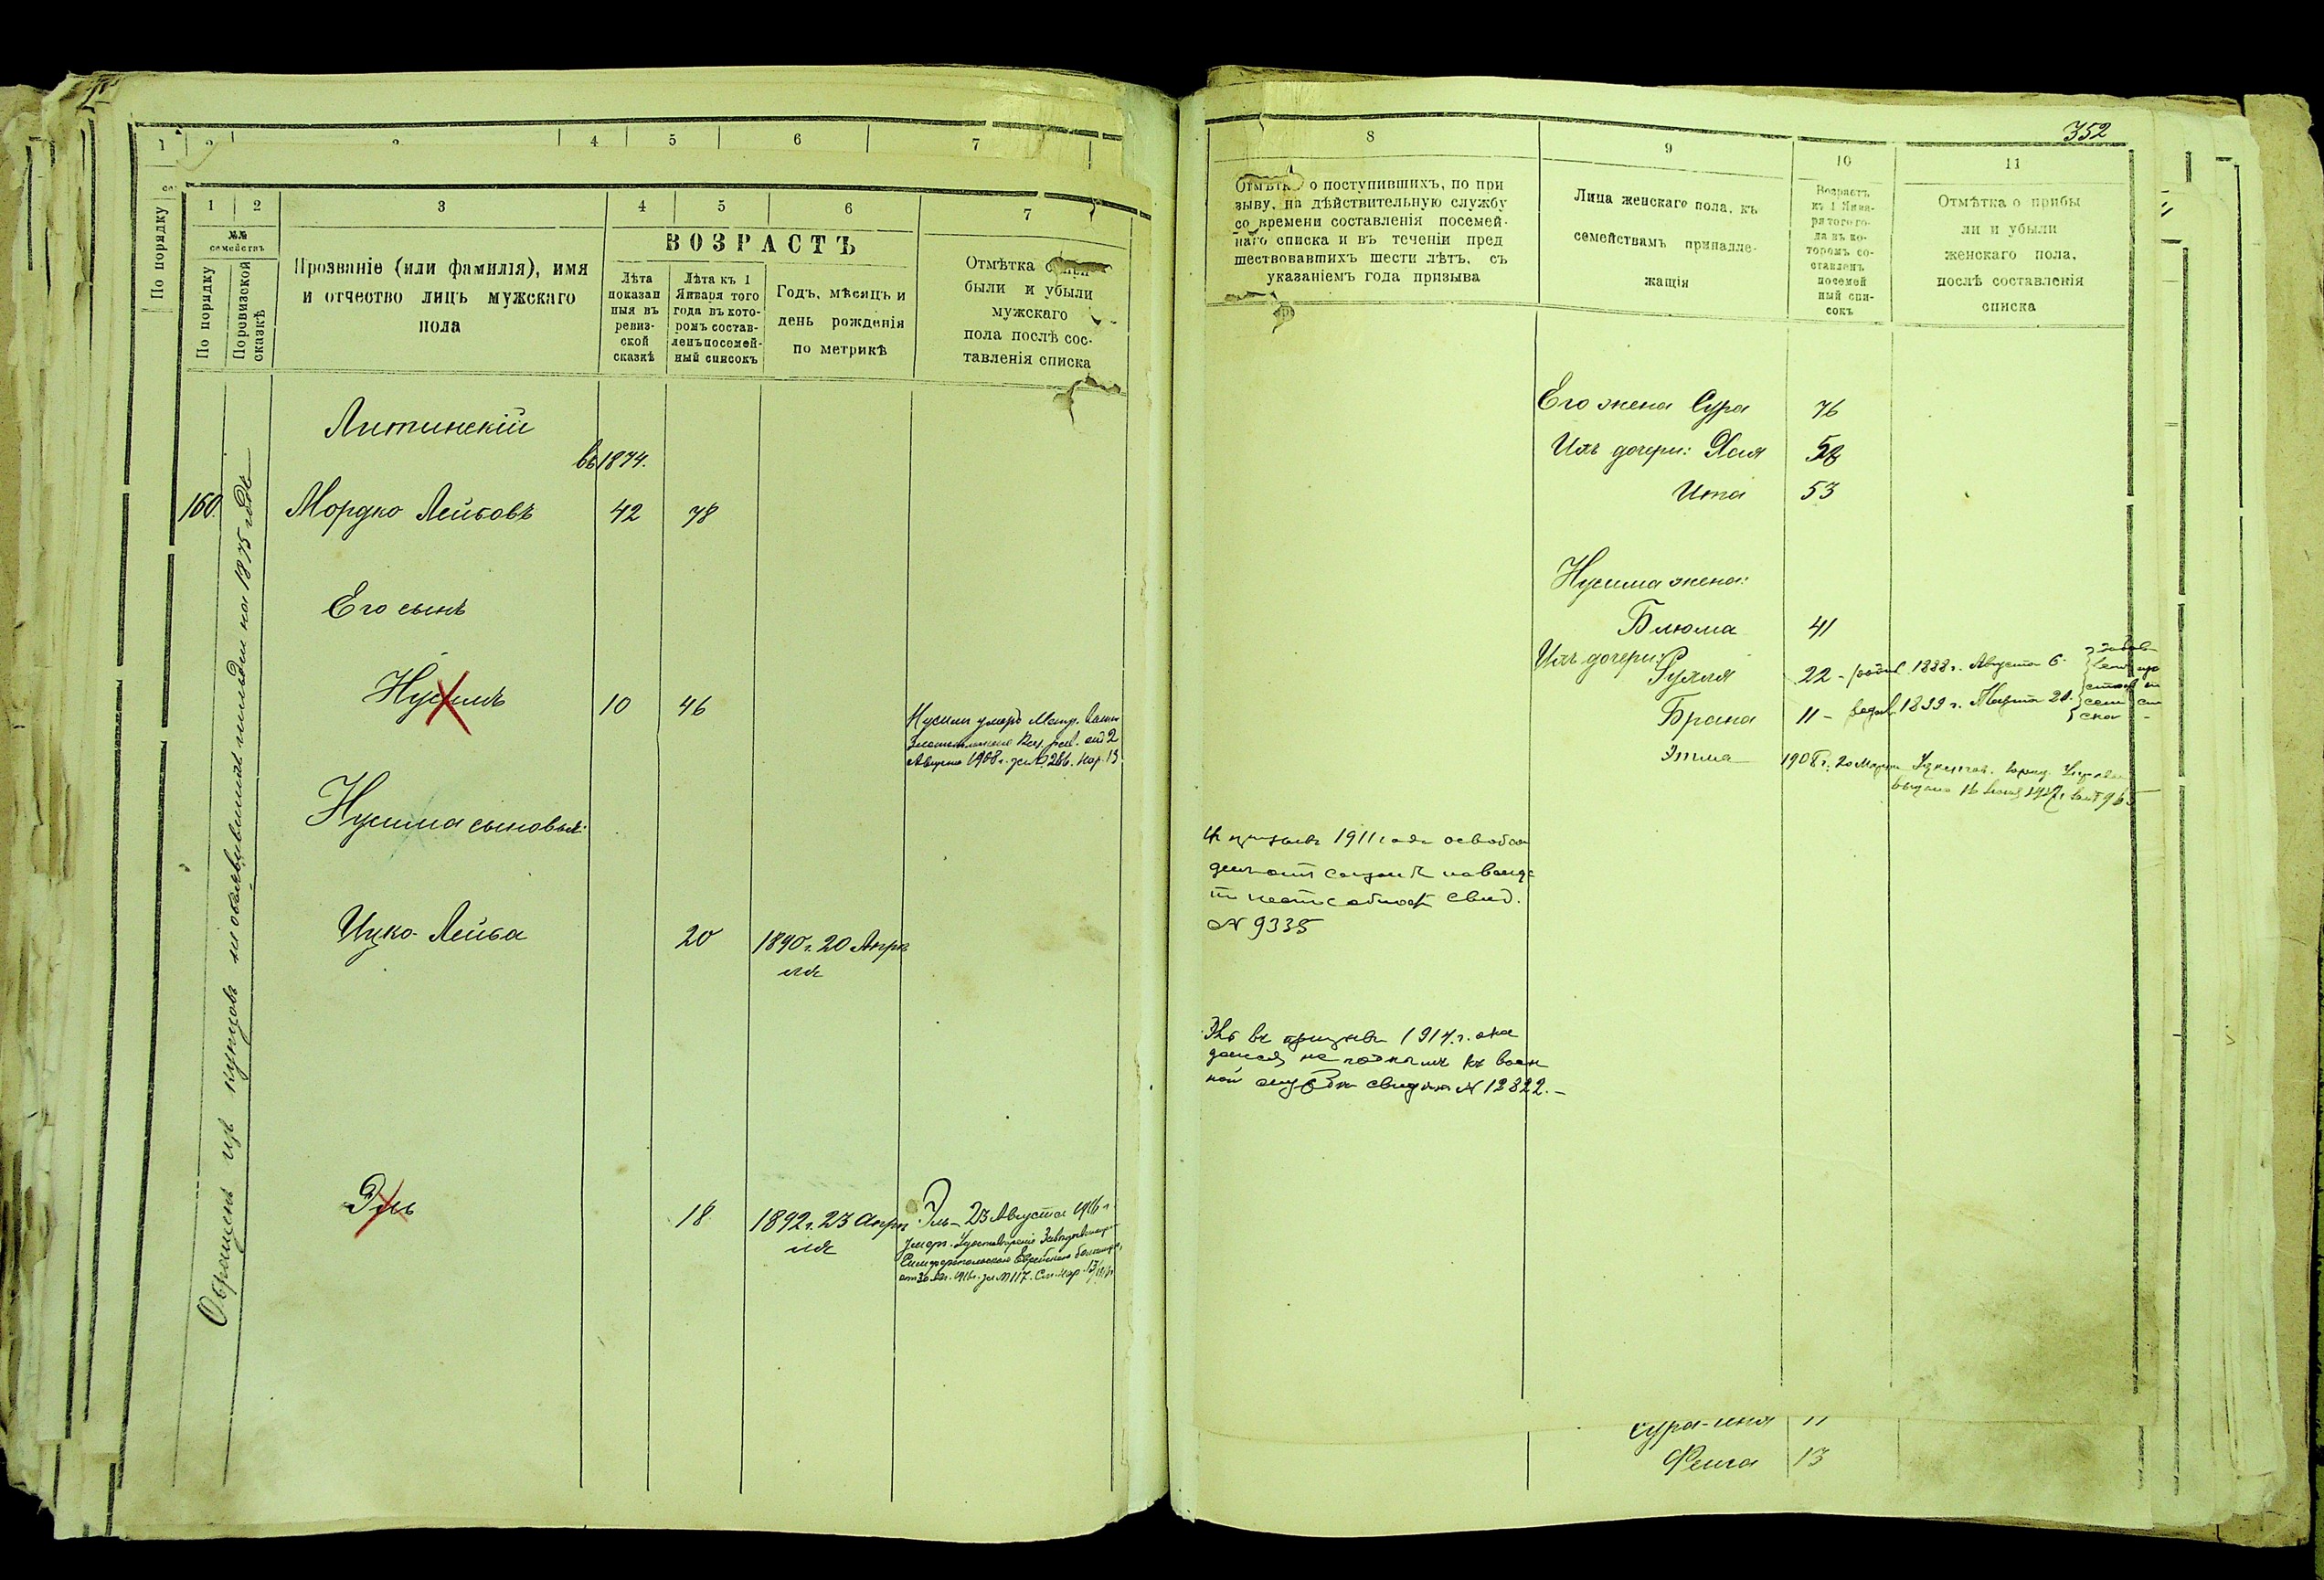 1 2 3 4 5 6 7
По порядку
1 2 3 4 5 6 7
№№ семействъ
По порядку
По ревизской сказкѣ
Прозваніе (или фамилія), имя
и отчество лицъ мужскаго
пола
ВОЗРАСТЪ
Лѣта
показан
ныя въ
ревиз-
ской
сказкѣ
Лѣта къ 1
Января того
года въ кото-
ромъ состав-
ленъ посемей-
ный списокъ
Годъ, мѣсяцъ и
день рожденія
по метрикѣ
Отмѣтка о
были и убыли
мужскаго
пола послѣ сос-
тавленія списка
Обращенъ изъ купцовъ не объявившихъ на 1875 годъ
Литинскій
въ 1874.
160. Мордко Лейбовъ 42 78
Его сынъ
Нусимъ 10 46
Нусимъ умеръ Метр.
Августа 1908 г. за № 266.
Нусима сыновья:
Ицко-Лейба 20 1890 г. 20 Апрѣ
ля
Эль 18 1892 г. 23 Апрѣ
ля
Эль - 23 Августа 1916 г.
умеръ. Удостовѣреніе
Симферопольской Еврейской
1916 г. за № 117.
352
8 9 10 11
Отмѣтка о поступившихъ, по при
зыву, на дѣйствительную службу
со времени составленія посемей-
наго списка и въ теченіи пред
шествовавшихъ шести лѣтъ, съ
указаніемъ года призыва
Лица женскаго пола, къ
семействамъ принадле-
жащія
Возрастъ
къ 1 Янва-
ря того го-
да въ ко-
торомъ со-
ставленъ
посемей
ный спи-
сокъ
Отмѣтка о прибы
ли и убыли
женскаго пола,
послѣ составленія
списка
Его жена Сура 76
Ихъ дочери: Хая
Ита 53
Нусима жена:
Блюма 41
Ихъ дочери:
Рухля 22 - 1888 г. Августа 6.
Брана 11 - 1899 г. Марта 20.
Этля 1908 г. 20 Марта
призывѣ 1911 года освобож
свид.
№ 9335
Эль въ призывъ 1914 г. ока
зался не годнымъ къ воен
ной службѣ свид. № 12822. -
Сура-
Фейга 13